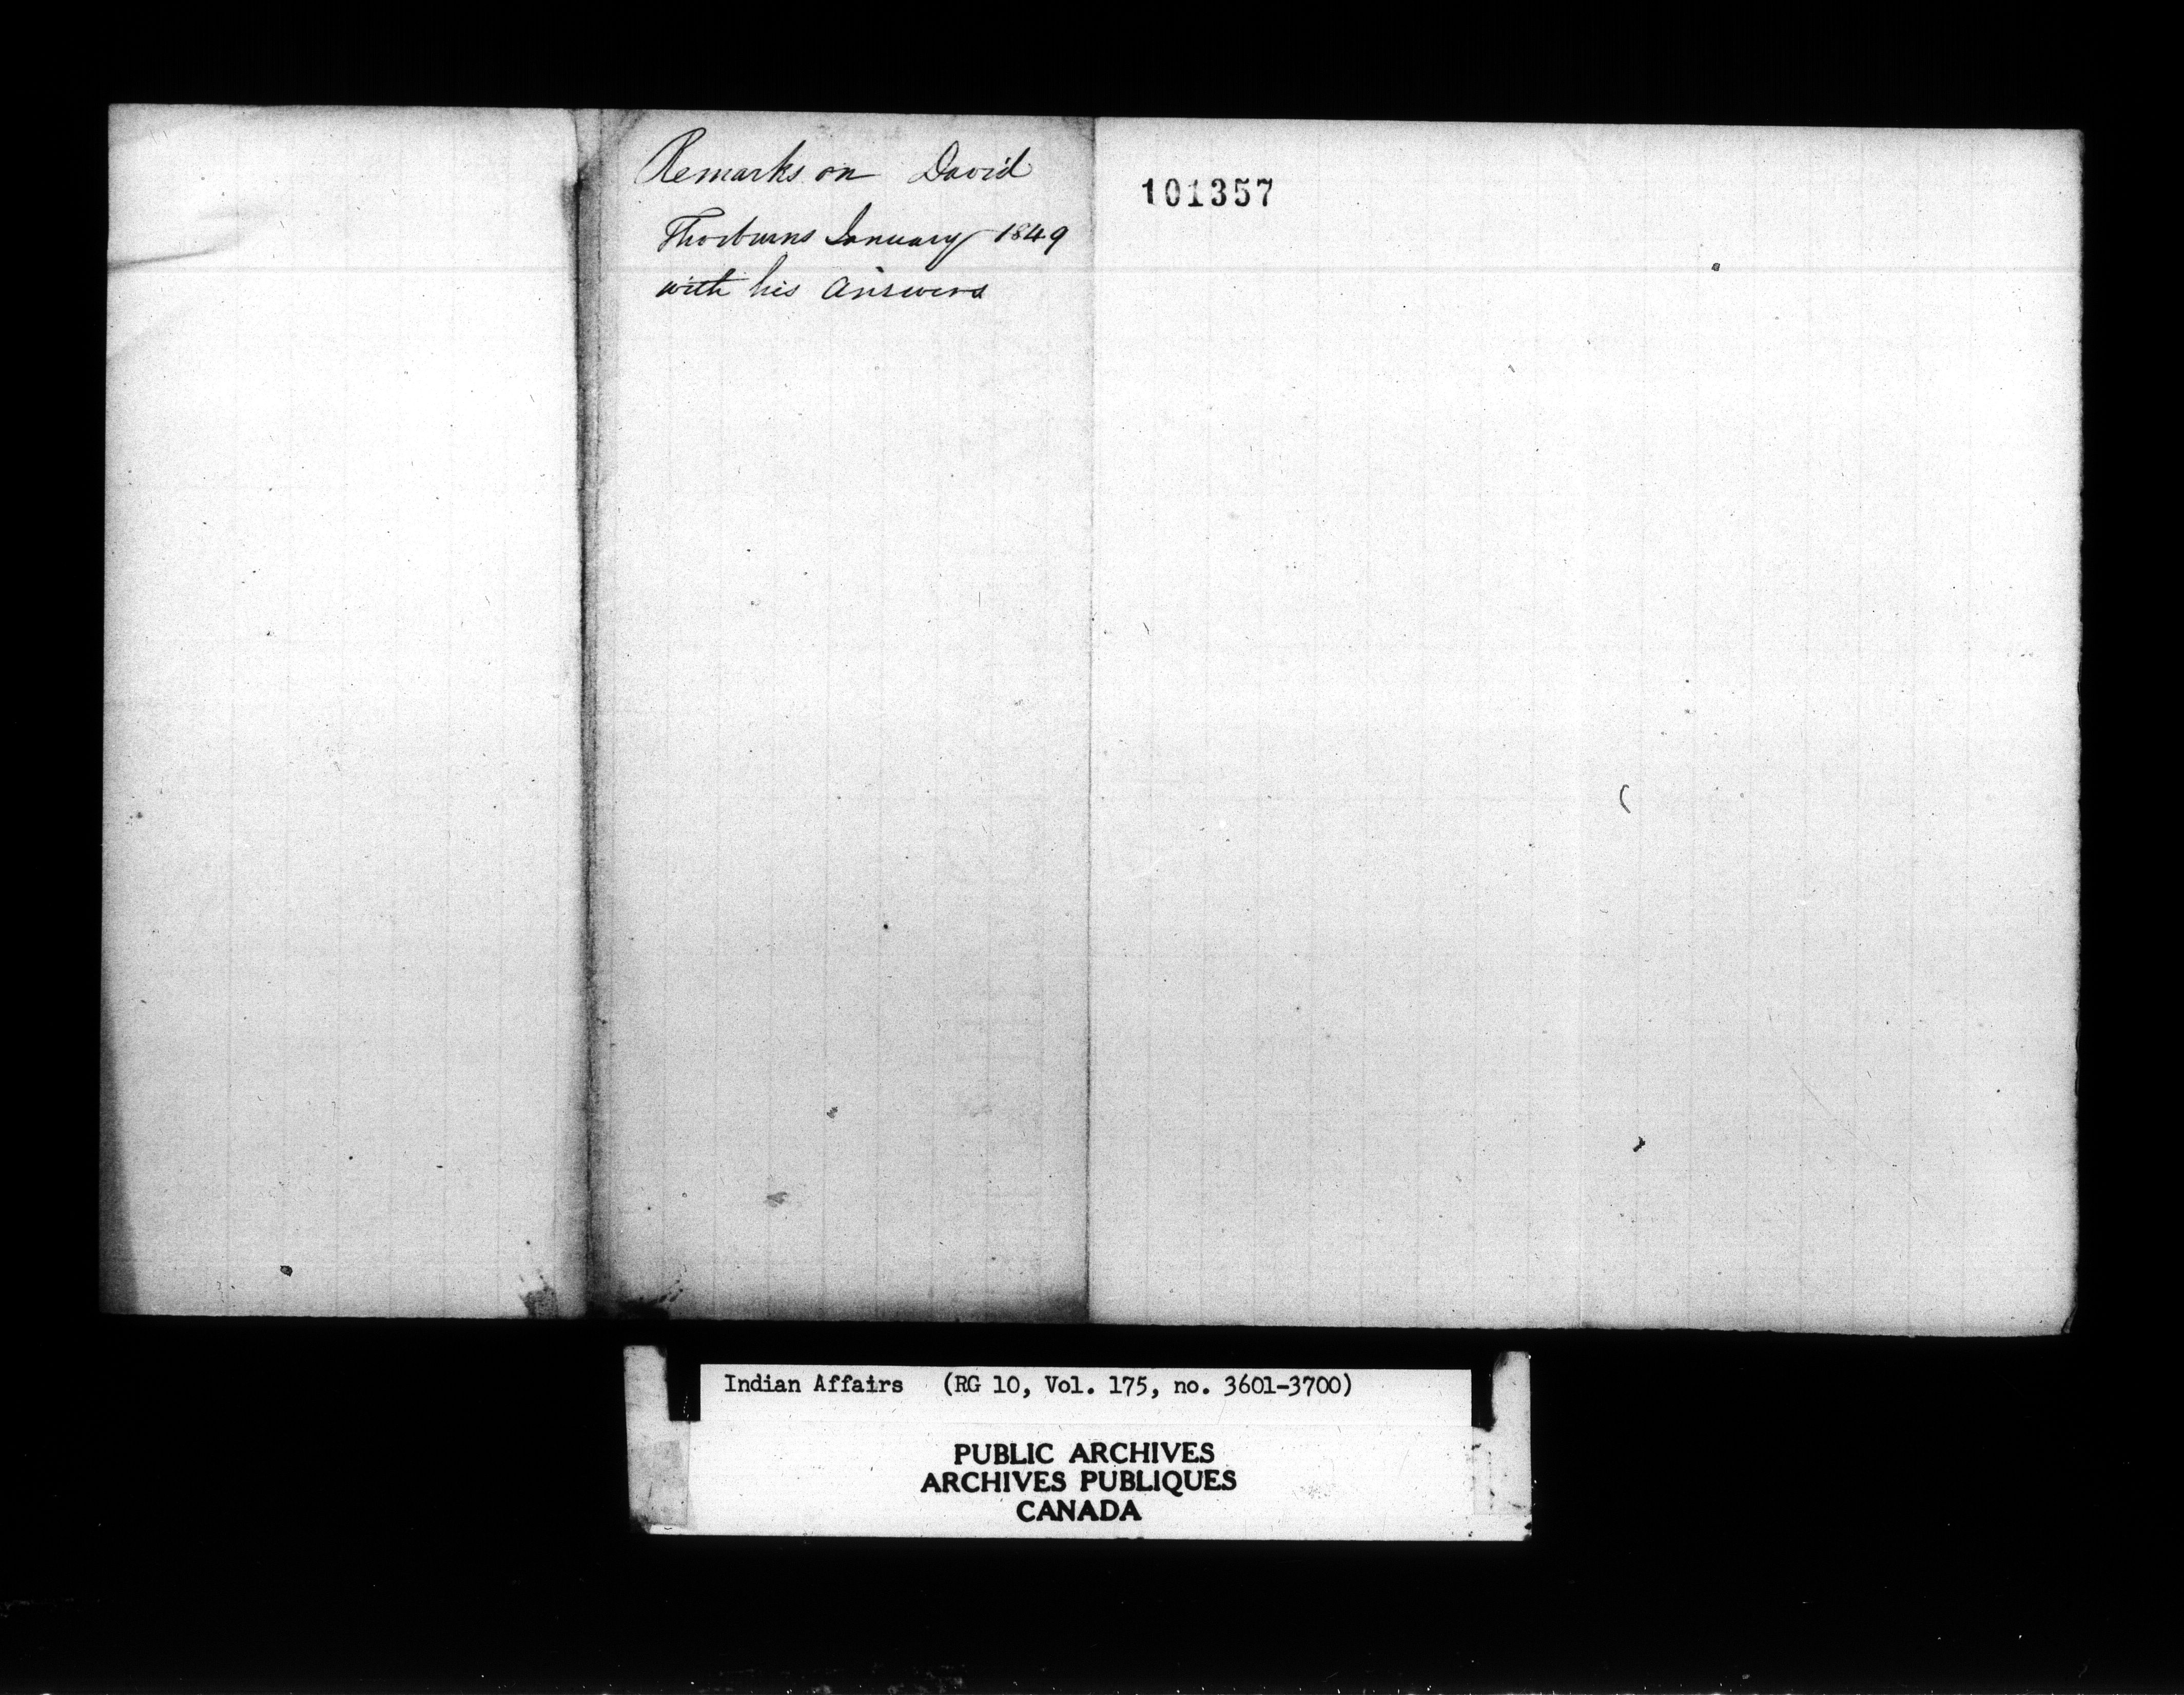 Remarks on David
Thorburns January 1849
with his Answers
101357
Indian Affairs (RG 10, Vol. 175, no. 3601-3700)
PUBLIC ARCHIVES
ARCHIVES PUBLIQUES
CANADA